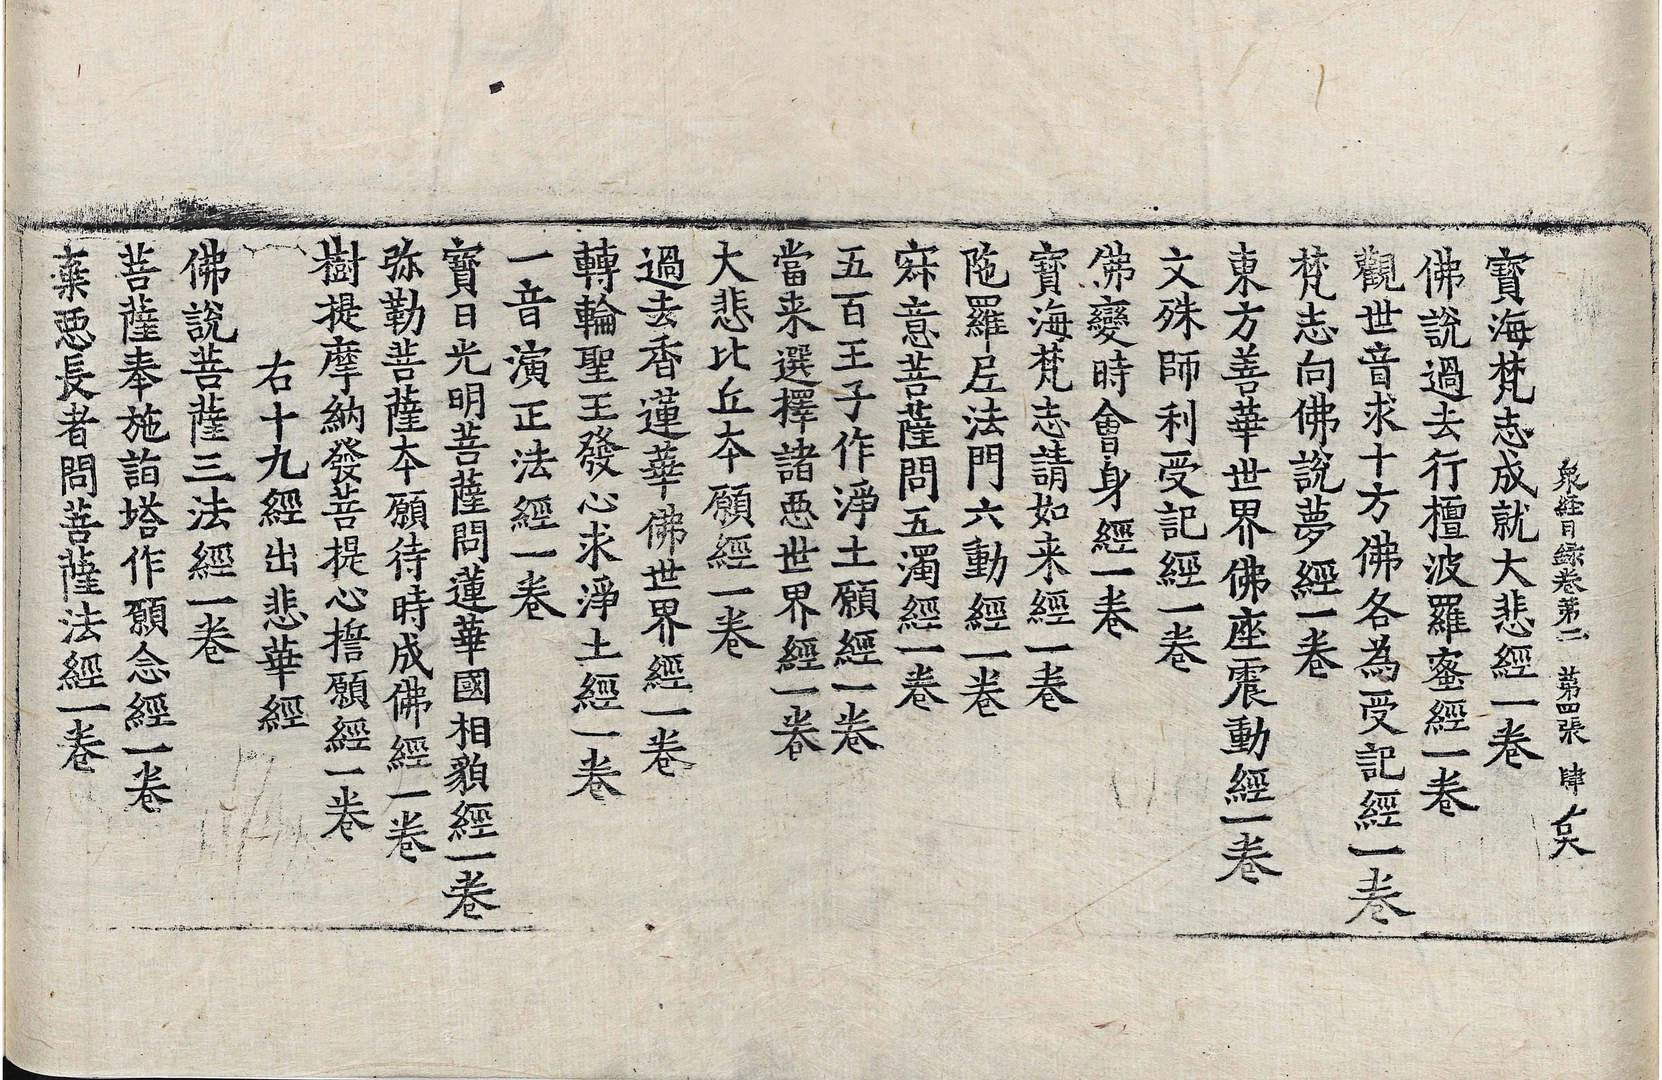 衆經目錄卷第二 第四張 肆
寶海梵志成就大悲經一卷
佛說過去行檀波羅蜜經一卷
觀世音求十方佛各為受記經一卷
梵志向佛說夢經一卷
東方善華世界佛座震動經一卷
文殊師利受記經一卷
佛變時會身經一卷
寶海梵志請如来經一卷
陁羅尼法門六動經一卷
寂意菩薩問五濁經一卷
五百王子作淨土願經一卷
當来選擇諸惡世界經一卷
大悲比丘夲願經一卷
過去香蓮華佛世界經一卷
轉輪聖王發心求淨土經一卷
一音演正法經一卷
寶日光明菩薩問蓮華國相貌經一卷
弥勒菩薩夲願待時成佛經一卷
樹提摩納發菩提心誓願經一卷
右十九經出悲華經
佛說菩薩三法經一卷
菩薩奉施詣塔作願念經一卷
棄惡長者問菩薩法經一卷